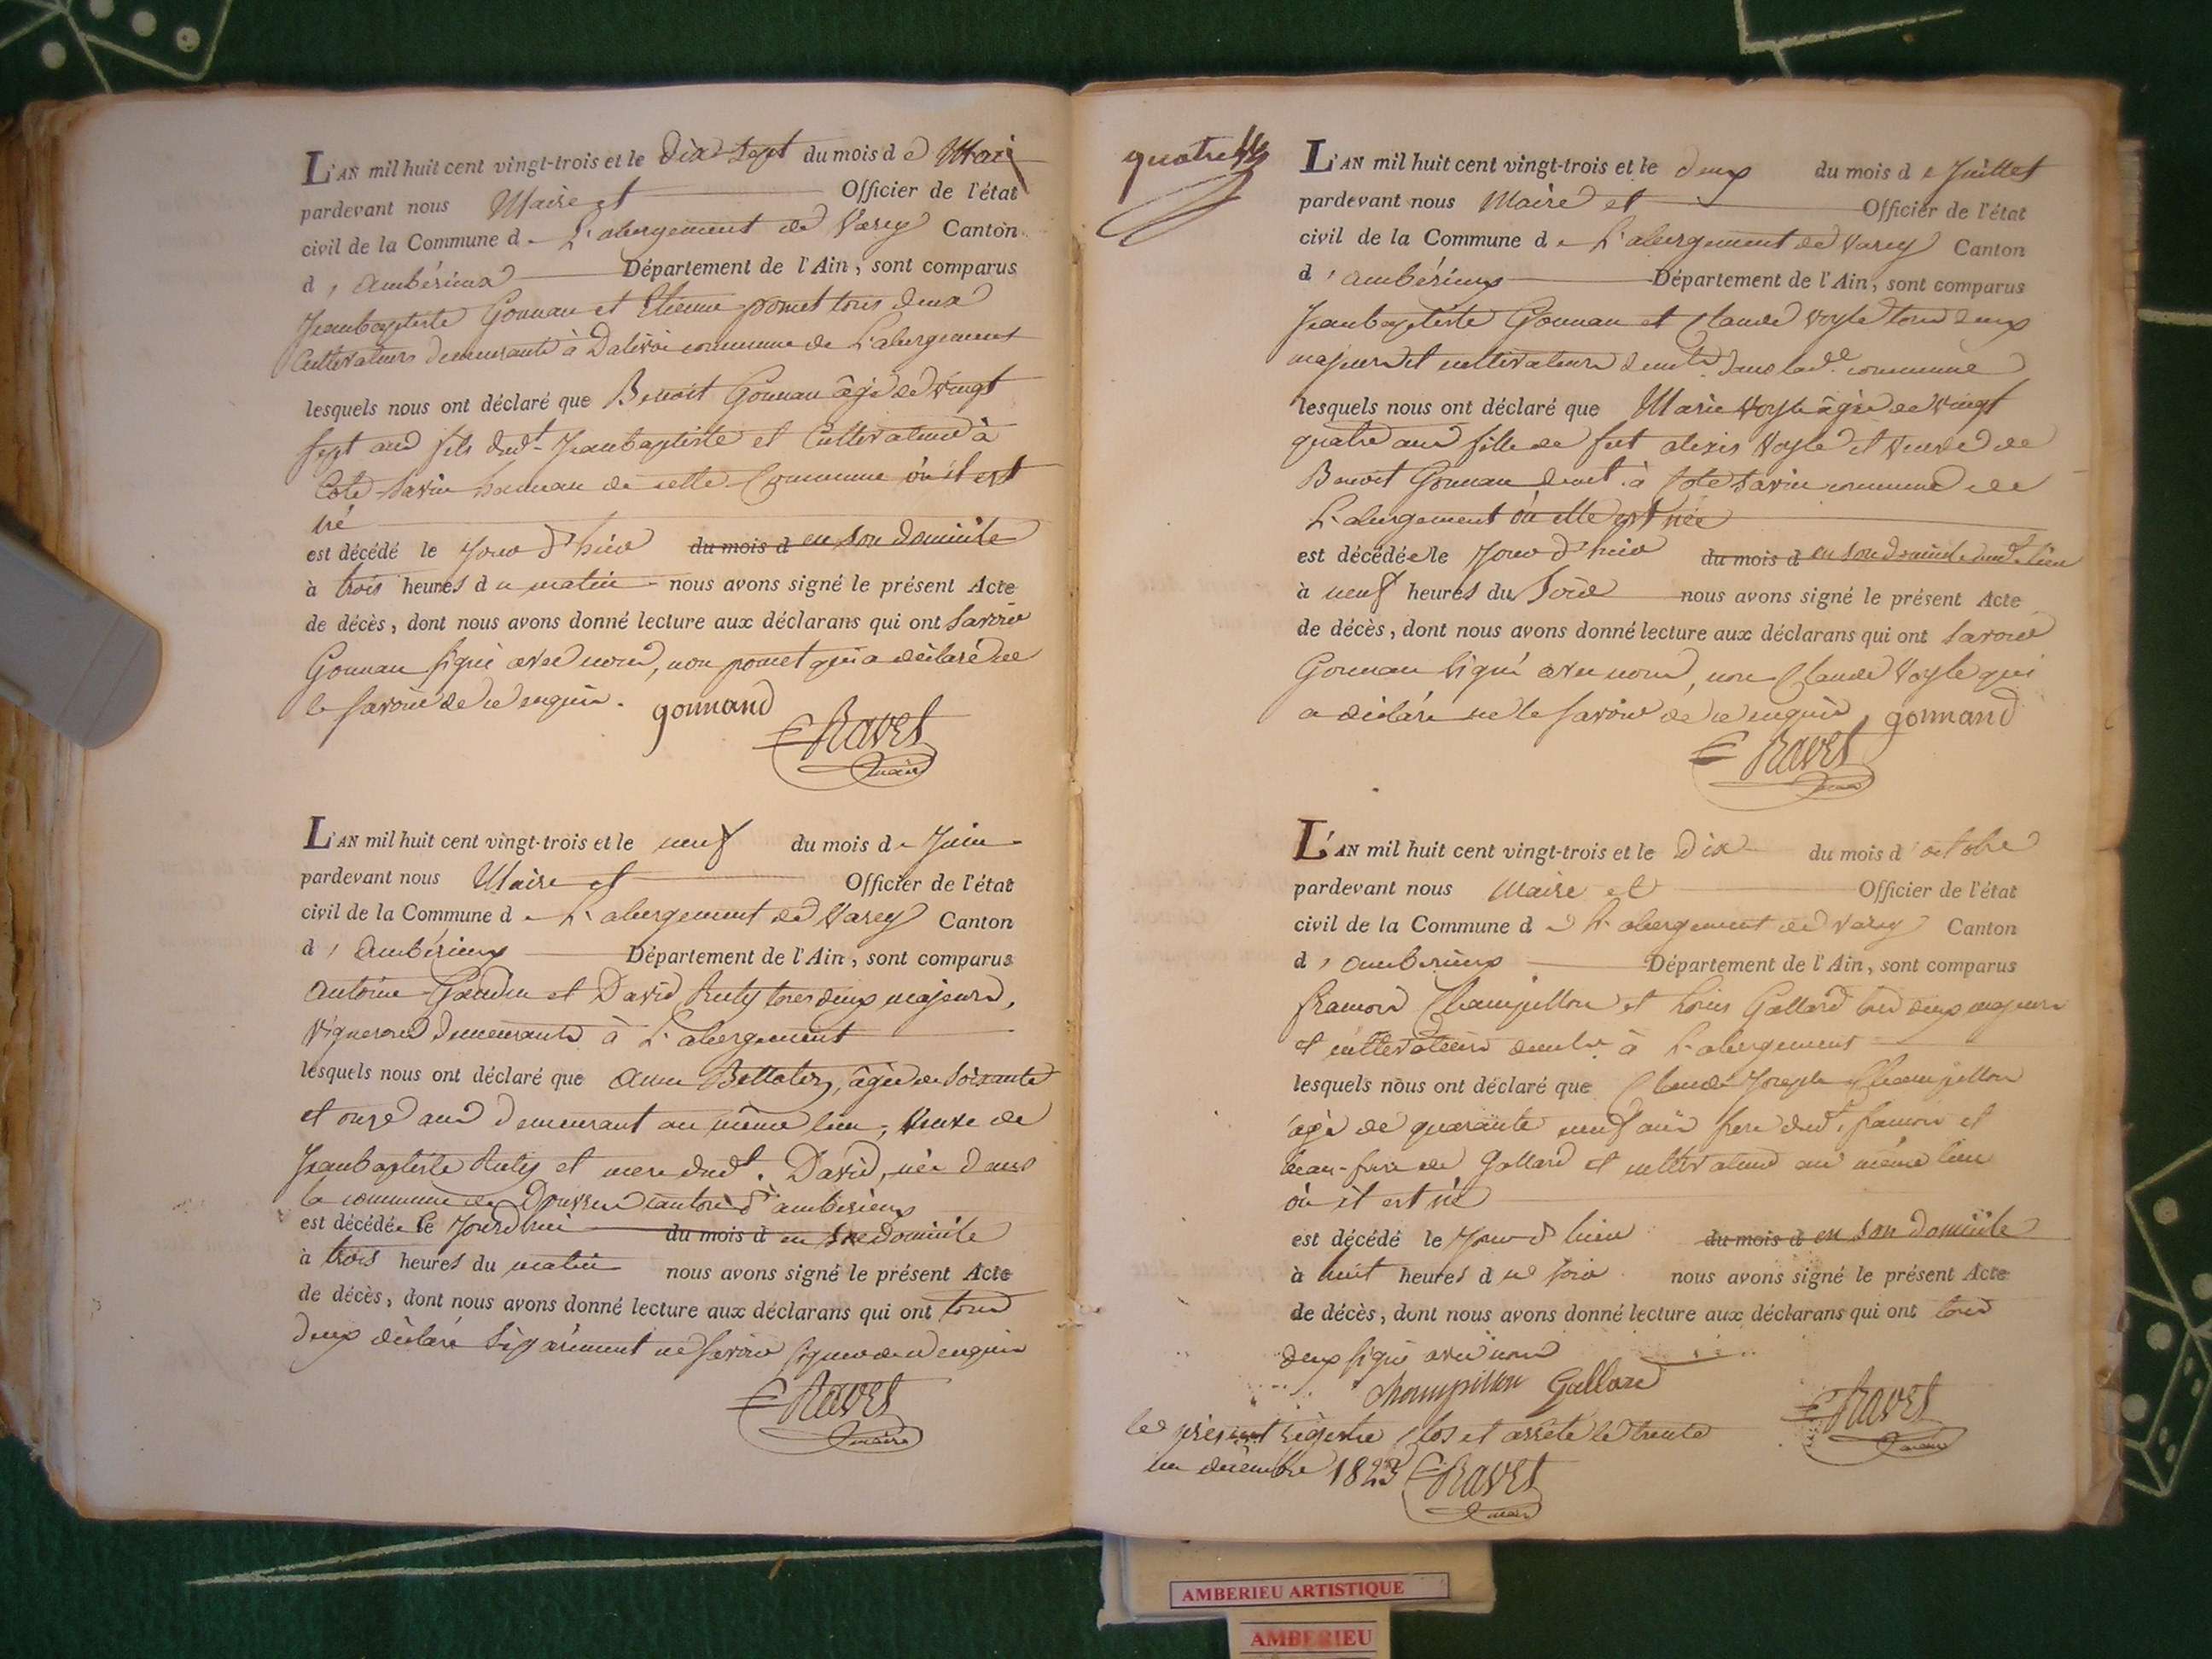 L'AN mil huit cent vingt-trois et le dix sept du mois d e Mai
pardevant nous Maire et Officier de l'état
civil de la Commune d e L'abergement de Varey Canton
d' ambérieux Département de l'Ain, sont comparus
Jeanbaptiste Gonnan et Etienne pomet tous deux
Cultivateurs demeurants à Dalivoi commune de L'abergement
lesquels nous ont déclaré que Benoit Gonnan âgé de vingt
sept ans fils dudt Jeanbaptiste et Cultivateur à
Cote Savin hameau de cette Commune où il est
né
est décédé le jour d'hier du mois d en son domicile
à trois heures du matin nous avons signé le présent Acte
de décès, dont nous avons donné lecture aux déclarans qui ont savoir
Gonnan signé avec nous, non pomet qui a déclaré ne
le savoir de ce enquis. gonnand
Ravet
maire
L'AN mil huit cent vingt-trois et le neuf du mois de Juin
pardevant nous Maire et Officier de l'état
civil de la Commune d e L'abergement de Varey Canton
d' ambérieux Département de l'Ain, sont comparus
antoine et David Ruty tous deux majeurs,
Vignerons demeurants à L'abergement
lesquels nous ont déclaré que anne âgée de soixante
et onze ans demeurant au même lieu, veuve de
Jeanbaptiste Ruty et mere dudt. David, née dans
la commune de Douvres canton d'ambérieux
est décédée le jourd'hui du mois d en son domicile
à trois heures du matin nous avons signé le présent Acte
de décès, dont nous avons donné lecture aux déclarans qui ont tous
deux déclaré séparément ne savoir signer de ce enquis
Ravet
maire
quatre
L'AN mil huit cent vingt-trois et le deux du mois d e Juillet
pardevant nous Maire et Officier de l'état
civil de la Commune d e L'abergement de Varey Canton
d' ambérieux Département de l'Ain, sont comparus
Jeanbaptiste Gonnan et Claude Voyle tous deux
majeurs et cultivateurs demts. dans lade. commune
lesquels nous ont déclaré que Marie Voyle âgée de vingt
quatre ans fille de feut alexis Voyle et veuve de
Benoit Gonnan demt. à Cote Savin commune de
L'abergement où elle est née
est décédée le jour d'hier du mois d en son domicile audt. lieu
à neuf heures du Soir nous avons signé le présent Acte
de décès, dont nous avons donné lecture aux déclarans qui ont savoir
Gonnan signé avec nous, non Claude Voyle qui
a déclaré ne le savoir de ce enquis gonnand
Ravet
maire
L'AN mil huit cent vingt-trois et le Dix du mois d'octobre
pardevant nous Maire et Officier de l'état
civil de la Commune d e L'abergement de Varey Canton
d' ambérieux Département de l'Ain, sont comparus
francois Champillon et Louis Gallard tous deux majeurs
et cultivateurs demts. à L'abergement
lesquels nous ont déclaré que Claude Joseph Champillon
âgé de quarante neuf ans frere dudt. francois et
beau-frere de Gallard et cultivateur au même lieu
où il est né
est décédé le jour d'hier du mois d en son domicile
à huit heures du soir nous avons signé le présent Acte
de décès, dont nous avons donné lecture aux déclarans qui ont tous
deux signé avec nous
Champillon Gallard
Ravet
maire
le présent régistre clos et arrêté le trente
un décembre 1823 Ravet
maire
AMBERIEU ARTISTIQUE
AMBERIEU